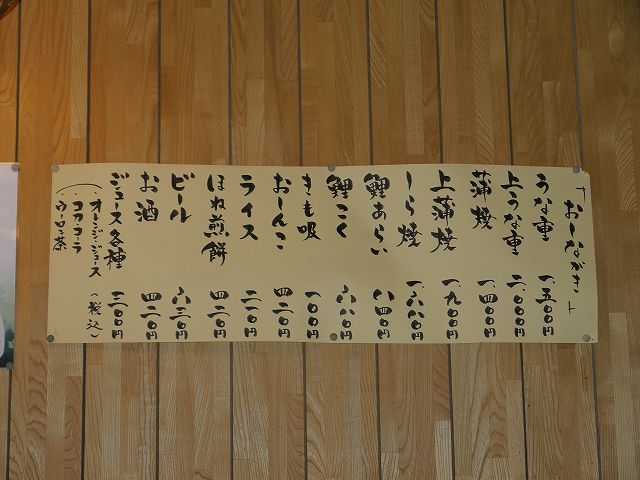 おしながき
うな重 一、五〇〇円
上うな重 二、〇〇〇円
蒲焼 一、四〇〇円
上蒲焼 一、九〇〇円
しら焼 一、六八〇円
鯉あらい 八四〇円
鯉こく 六八〇円
きも吸 一〇〇円
おしんこ 四二〇円
ライス 二一〇円
ほね煎餅 四二〇円
ビール 六三〇円
お酒 四二〇円
ジュース各種 三一〇〇円
・オレンジジュース
・コカ・コーラ
・ウーロン茶
(税込)